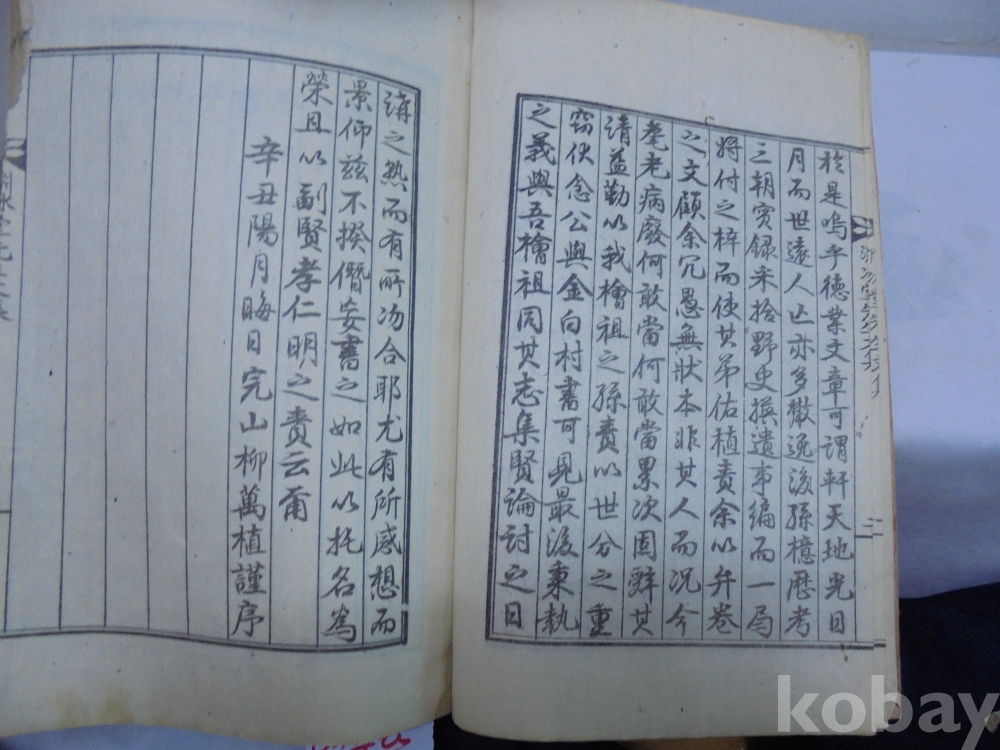 於是嗚乎德業文章可謂軒天地光日
月而世遠人亡亦多散逸後孫檍歷考
三朝实録采拾野史撰遺事編而一局
將付之梓而使其弟佑植責余以弁卷
之文顧余冗愚無狀本非其人而況今
耄老病廢何敢當何敢當累次固辭其
請益勤以我檜祖之孫責以世分之重
窃伏念公與金白村書可見最後秉執
之義與吾檜祖同其志集賢論討之日
講之熟而有所沕合耶尤有所感想而
景仰兹不揆僭妄書之如此以托名為
榮且以副賢孝仁明之責云甭
辛丑陽月晦日完山柳萬植謹序
三
kobay